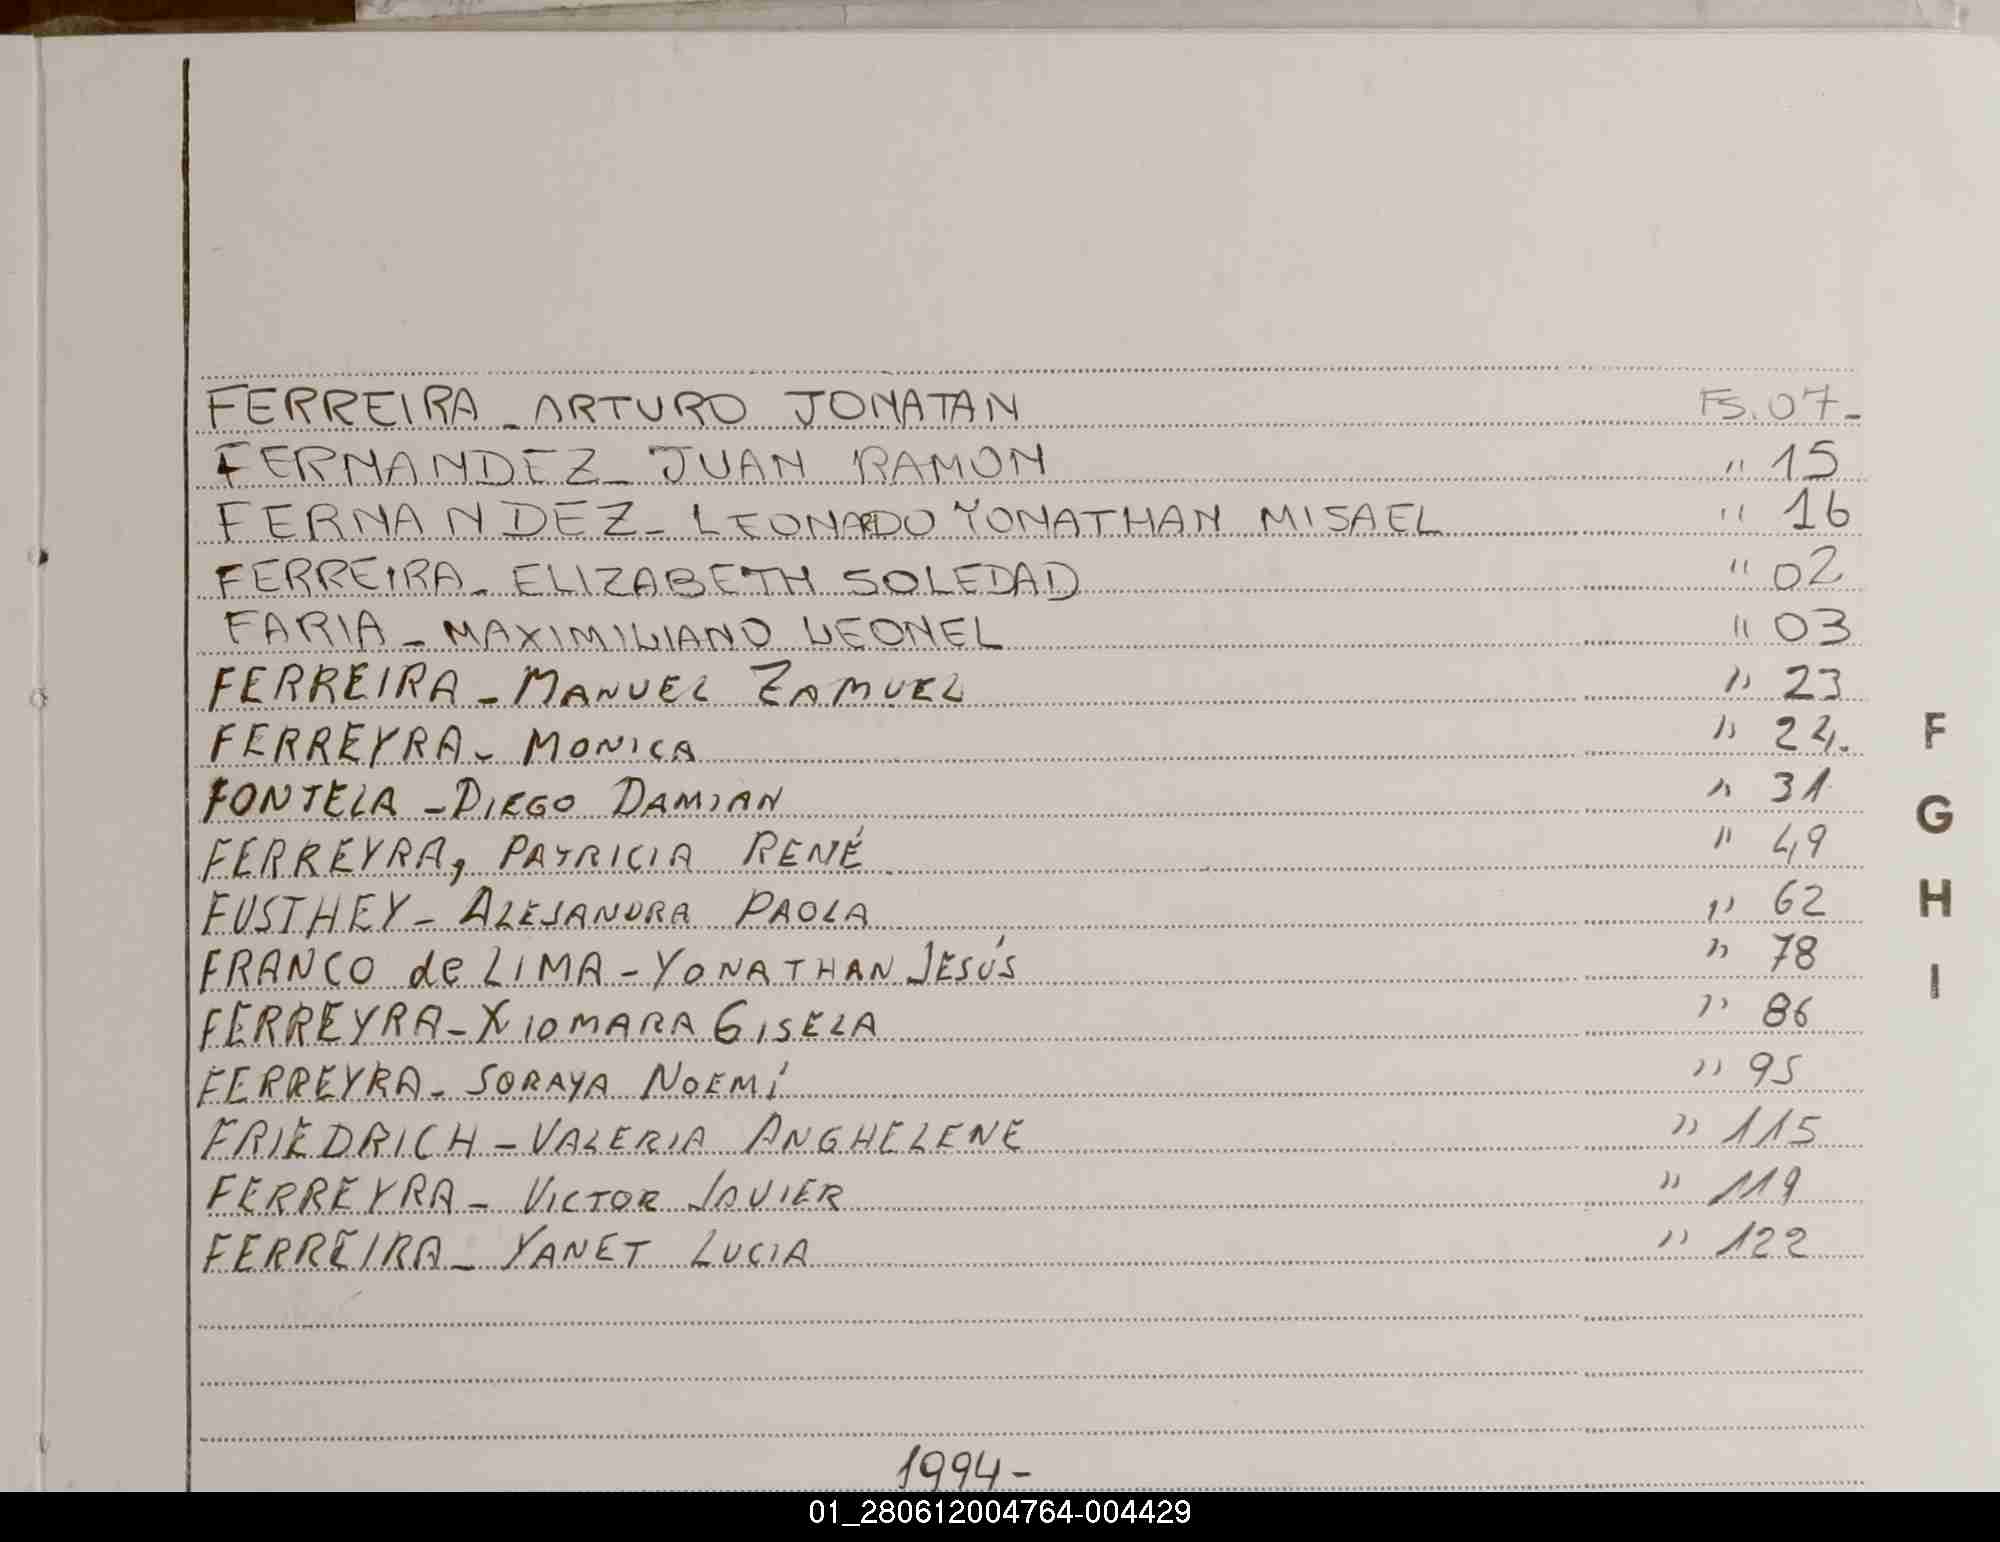 FERREIRA - ARTURO JONATAN Fs. 07-
FERNANDEZ - JUAN RAMON " 15
FERNANDEZ - LEONARDO YONATHAN MISAEL " 16
FERREIRA - ELIZABETH SOLEDAD " 02
FARIA - MAXIMILIANO LEONEL " 03
FERREIRA - MANUEL ZAMUEL " 23
FERREYRA - MONICA " 24.
FONTELA - DIEGO DAMIAN " 31
FERREYRA, PATRICIA RENÉ " 49
FUSTHEY - ALEJANDRA PAOLA " 62
FRANCO de LIMA - YONATHAN JESÚS " 78
FERREYRA - XIOMARA GISELA " 86
FERREYRA - SORAYA NOEMÍ " 95
FRIEDRICH - VALERIA ANGHELENE " 115
FERREYRA - VICTOR JAVIER " 119
FERREIRA - YANET LUCIA " 122
1994-
F
G
H
I
01_280612004764-004429